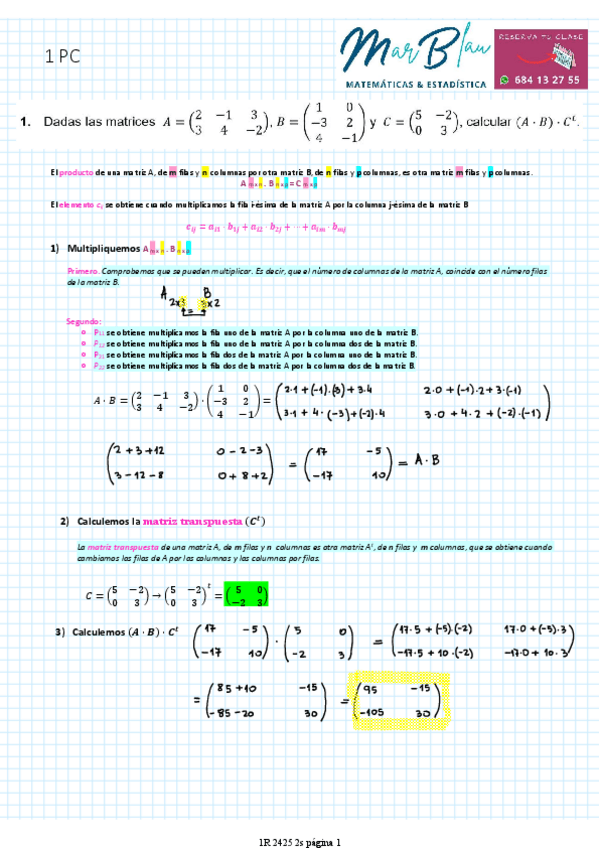 1 PC
MarBlau
MATEMÁTICAS & ESTADÍSTICA
RESERVA TU CLASE
684 13 27 55
1. Dadas las matrices A = (2 −1 3 / 3 4 −2), B = (1 0 / −3 2 / 4 −1) y C = (5 −2 / 0 3), calcular (A · B) · Cᵗ.
El producto de una matriz A, de m filas y n columnas por otra matriz B, de n filas y p columnas, es otra matriz m filas y p columnas.
A m x n . B n x p = C m x p
El elemento cij se obtiene cuando multiplicamos la fila i-ésima de la matriz A por la columna j-ésima de la matriz B
cij = ai1 · b1j + ai2 · b2j + ··· + aim · bmj
1) Multipliquemos A m x n . B n x p
Primero. Comprobemos que se pueden multiplicar. Es decir, que el número de columnas de la matriz A, coincide con el número filas
de la matriz B.
A B
2x3 3x2
=
Segundo:
P11 se obtiene multiplicamos la fila uno de la matriz A por la columna uno de la matriz B.
P12 se obtiene multiplicamos la fila uno de la matriz A por la columna dos de la matriz B.
P21 se obtiene multiplicamos la fila dos de la matriz A por la columna uno de la matriz B.
P22 se obtiene multiplicamos la fila dos de la matriz A por la columna dos de la matriz B.
A · B = (2 −1 3 / 3 4 −2) · (1 0 / −3 2 / 4 −1) = (2·1+(-1)·(3)+3·4 2·0+(-1)·2+3·(-1) / 3·1+4·(-3)+(-2)·4 3·0+4·2+(-2)·(-1))
(2+3+12 0-2-3 / 3-12-8 0+8+2) = (17 -5 / -17 10) = A·B
2) Calculemos la matriz transpuesta (Cᵗ)
La matriz transpuesta de una matriz A, de m filas y n columnas es otra matriz Aᵗ, de n filas y m columnas, que se obtiene cuando
cambiamos las filas de A por las columnas y las columnas por filas.
C = (5 −2 / 0 3) → (5 −2 / 0 3)ᵗ = (5 0 / −2 3)
3) Calculemos (A · B) · Cᵗ (17 -5 / -17 10) · (5 0 / -2 3) = (17·5+(-5)·(-2) 17·0+(-5)·3 / -17·5+10·(-2) -17·0+10·3)
= (85+10 -15 / -85-20 30) = (95 -15 / -105 30)
1R 2425 2s página 1